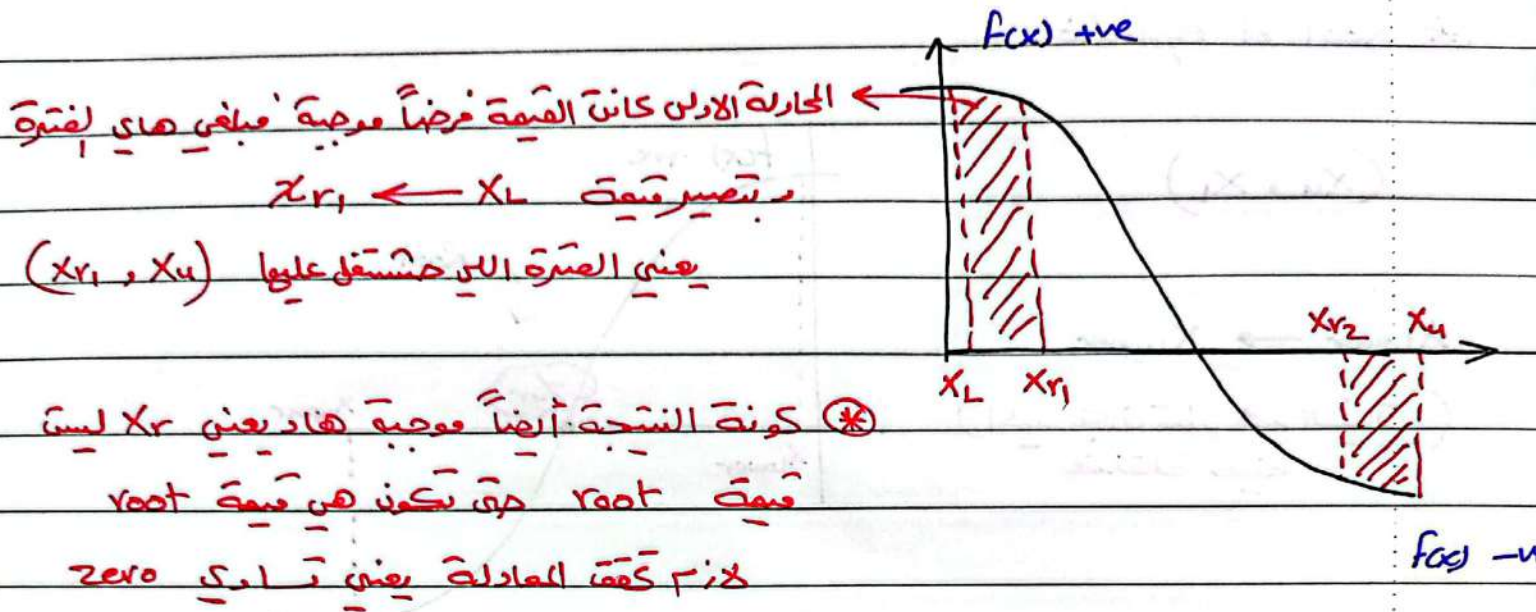 f(x) +ve
المحاولة الاولى كانت القيمة فرضاً موجبة فبلغي هاي الفترة
و بتصير قيمة XL ← Xr1
يعني الفترة اللي حنشتغل عليها (Xr1 , Xu)
Xr2 Xu
XL Xr1
* كونة النتيجة أيضاً موجبة هاد يعني Xr ليست
قيمة root حتى تكون هي قيمة root
لازم تحقق المعادلة يعني تساوي zero
f(x) -v